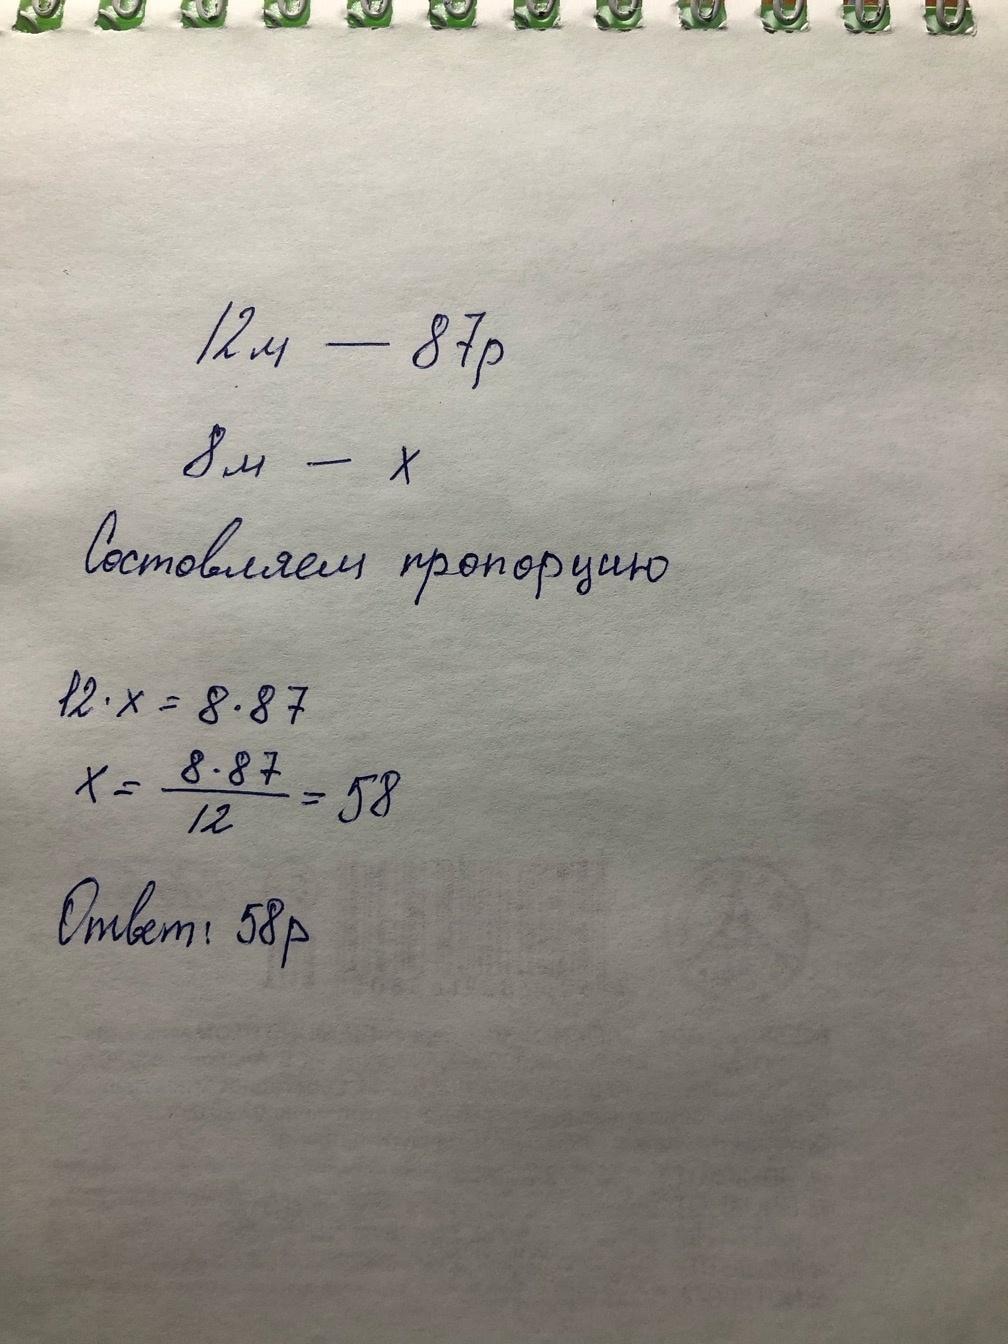 12м — 87р
8м — х
Состовляем пропорцию
12·х = 8·87
х = 8·87/12 = 58
Ответ: 58р